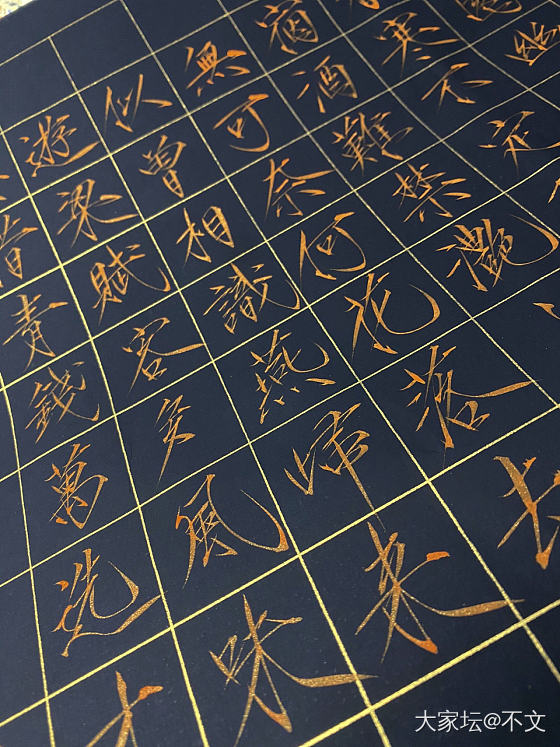 幽
寒不定
宿酒難禁灩
無可奈何花落去
似曾相識燕歸來
遊梁賦客多風味
惜青錢萬選才
大家坛@不文